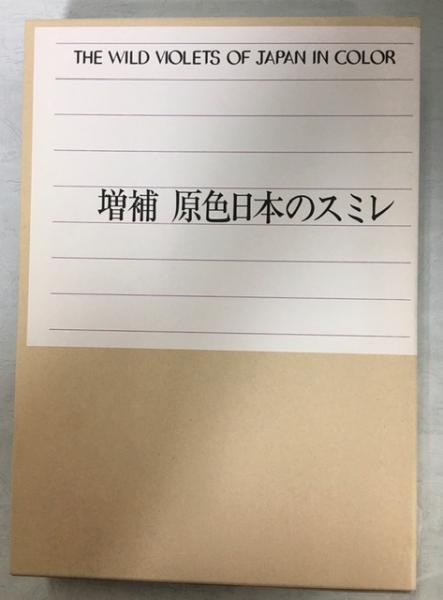 THE WILD VIOLETS OF JAPAN IN COLOR
増補 原色日本のスミレ